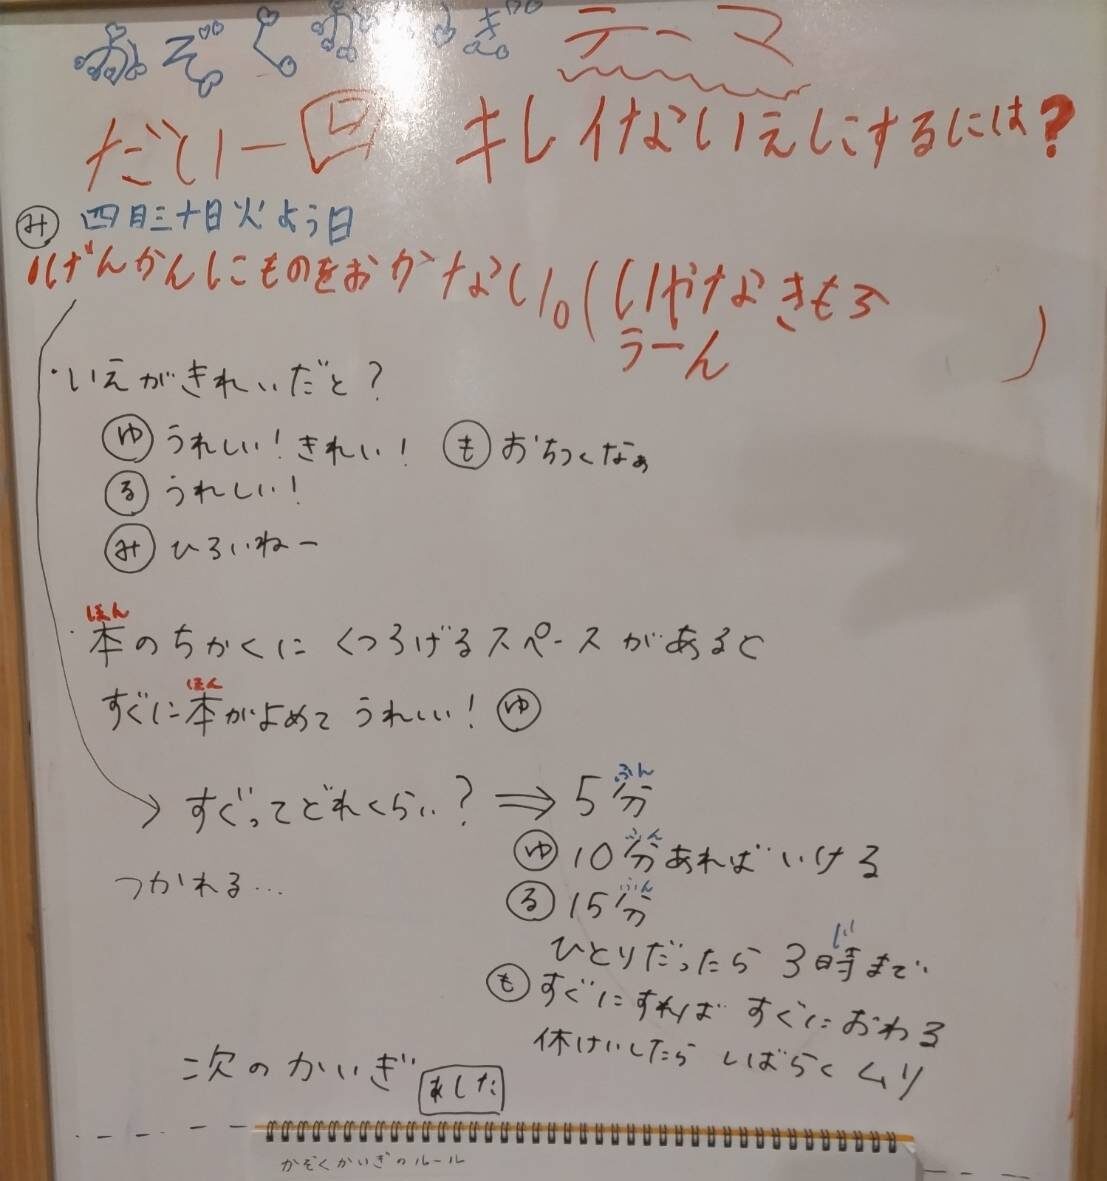 かぞくかいぎ テーマ
だい一回 キレイないえにするには?
み 四月三十日火よう日
げんかんにものをおかない。(いやなきもち
うーん )
・いえがきれいだと?
ゆ うれしい!きれい! も おちつくなぁ
る うれしい!
み ひろいねー
・本のちかくに くつろげるスペースがあると
ほん
すぐに本がよめて うれしい! ゆ
ほん
→ すぐってどれくらい? ⇒ 5分
ふん
ゆ 10分あれば いける
ふん
つかれる…
る 15分
ふん
ひとりだったら 3時まで
じ
も すぐにすれば すぐにおわる
休けいしたら しばらくムリ
次のかいぎ あした
かぞくかいぎのルール